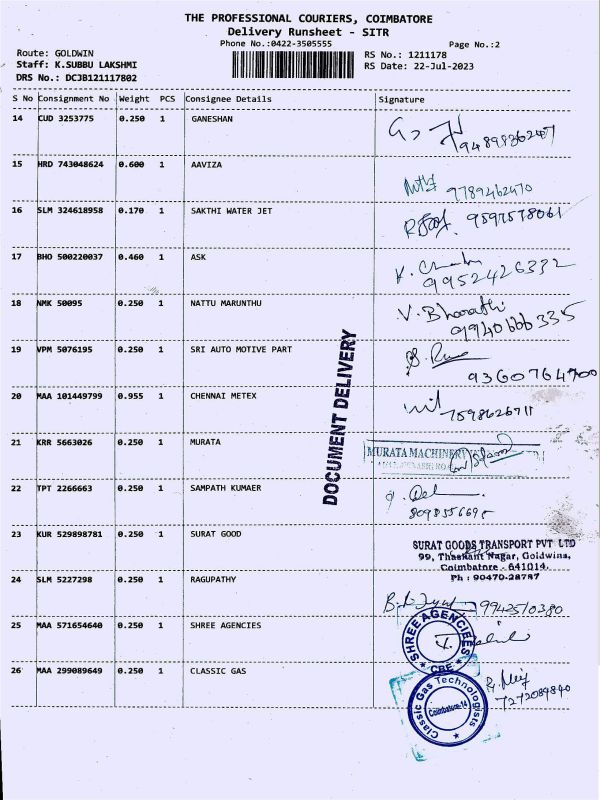 THE PROFESSIONAL COURIERS, COIMBATORE
Delivery Runsheet - SITR
Phone No.:0422-3505555
Page No.:2
Route: GOLDWIN
Staff: K.SUBBU LAKSHMI
DRS No.: DCJB121117802
RS No.: 1211178
RS Date: 22-Jul-2023
S No Consignment No Weight PCS Consignee Details Signature
14 CUD 3253775 0.250 1 GANESHAN
15 HRD 743048624 0.600 1 AAVIZA
9789462470
16 SLM 324618958 0.170 1 SAKTHI WATER JET
9597578061
17 BHO 500220037 0.460 1 ASK
9952426332
18 NMK 50095 0.250 1 NATTU MARUNTHU
V. Bharathi
9940666335
19 VPM 5076195 0.250 1 SRI AUTO MOTIVE PART
9360764900
20 MAA 101449799 0.955 1 CHENNAI METEX
7598626711
DOCUMENT DELIVERY
21 KRR 5663026 0.250 1 MURATA
MURATA MACHINERY
22 TPT 2266663 0.250 1 SAMPATH KUMAER
23 KUR 529898781 0.250 1 SURAT GOOD
SURAT GOODS TRANSPORT PVT LTD
99, Thasami Nagar, Goldwins,
Coimbatore - 641014.
Ph : 90470-28787
24 SLM 5227298 0.250 1 RAGUPATHY
9942510380
25 MAA 571654640 0.250 1 SHREE AGENCIES
SHREE AGENCIEES
CBE
26 MAA 299089649 0.250 1 CLASSIC GAS
Classic Gas Technologists
Coimbatore-14
7272089840